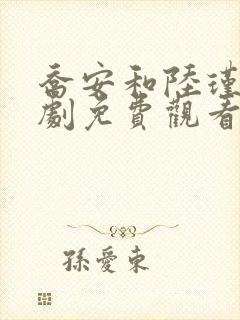 喬安和陸瑾
劇免費觀看
孫愛東